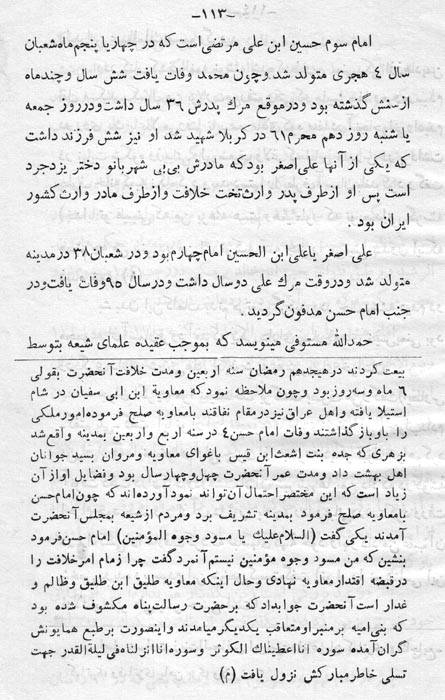 -۱۱۳-
امام سوم حسین ابن علی مرتضی است که در چهار یا پنجم ماه شعبان
سال ٤ هجری متولد شد و چون محمد وفات یافت شش سال و چند ماه
از سنش گذشته بود و در موقع مرك پدرش ۳٦ سال داشت و در روز جمعه
یا شنبه روز دهم محرم ٦۱ در کربلا شهید شد او نیز شش فرزند داشت
که یکی از آنها علی اصغر بود که مادرش بی بی شهربانو دختر یزدجرد
است پس او از طرف پدر وارث تخت خلافت و از طرف مادر وارث کشور
ایران بود .
علی اصغر یا علی ابن الحسین امام چهارم بود و در شعبان ۳۸ در مدینه
متولد شد و در وقت مرك علی دو سال داشت و در سال ۹۵ وفات یافت و در
جنب امام حسن مدفون گردید .
حمدالله مستوفی مینویسد که بموجب عقیده علمای شیعه بتوسط
بیعت کردند در هیجدهم رمضان سنه اربعین و مدت خلافت آنحضرت بقولی
٦ ماه و سه روز بود و چون ملاحظه نمود که معاویة ابن ابی سفیان در شام
استیلا یافته و اهل عراق نیز در مقام نفاقند بامعاویه صلح فرموده امور ملکی
را باو باز گذاشتند وفات امام حسن ٤ در سنه اربع و اربعین بمدینه واقع شد
بزهری که جده بنت اشعث ابن قیس باغوای معاویه و مروان بسید جوانان
اهل بهشت داد و مدت عمر آنحضرت چهل و چهار سال بود و فضایل او از آن
زیاد است که این مختصر احتمال آن تواند نمود آورده اند که چون امام حسن
بامعاویه صلح فرمود بمدینه تشریف برد و مردم از شیعه بمجلس آنحضرت
آمدند یکی گفت (السلام علیك یا مسود وجوه المؤمنین) امام حسن فرمود
بنشین که من مسود وجوه مؤمنین نیستم آنمرد گفت چرا زمام امر خلافت را
در قبضه اقتدار معاویه نهادی و حال اینکه معاویه طلیق ابن طلیق و ظالم و
غدار است آنحضرت جواب داد که بر حضرت رسالت پناه مکشوف شده بود
که بنی امیه بر منبر او متعاقب یکدیگر میامدند و اینصورت بر طبع همایونش
گران آمده سوره انا اعطیناك الکوثر و سوره انا انزلناه فی لیلة القدر جهت
تسلی خاطر مبارکش نزول یافت (م)